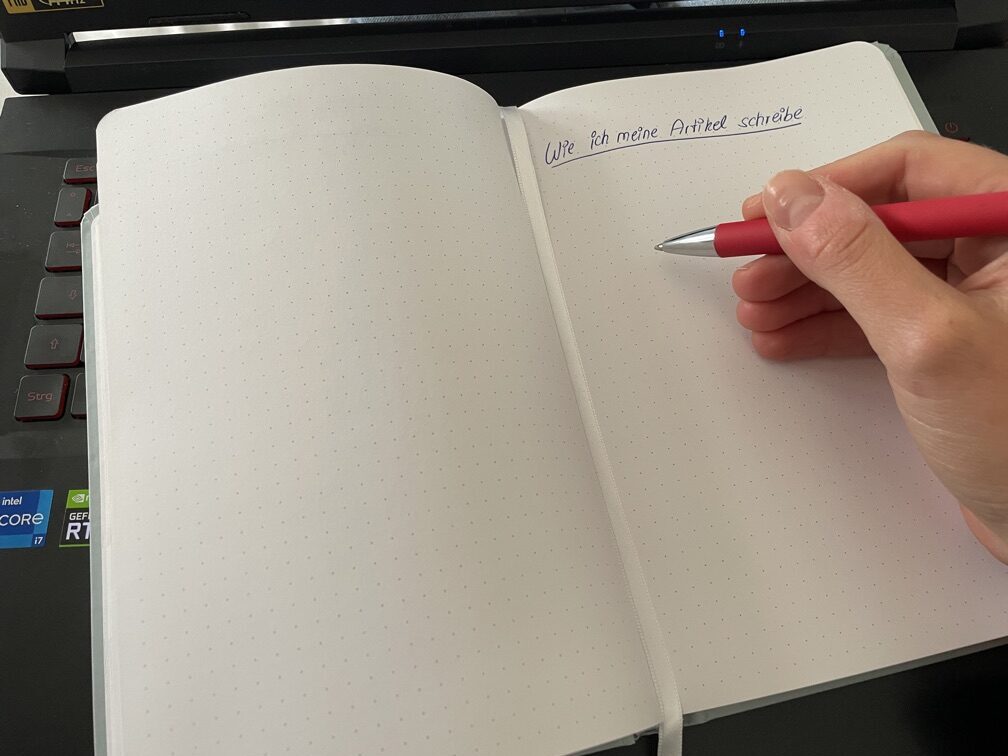 Wie ich meine Artikel schreibe
Esc
Strg
intel
CORE
i7
GEF
RT